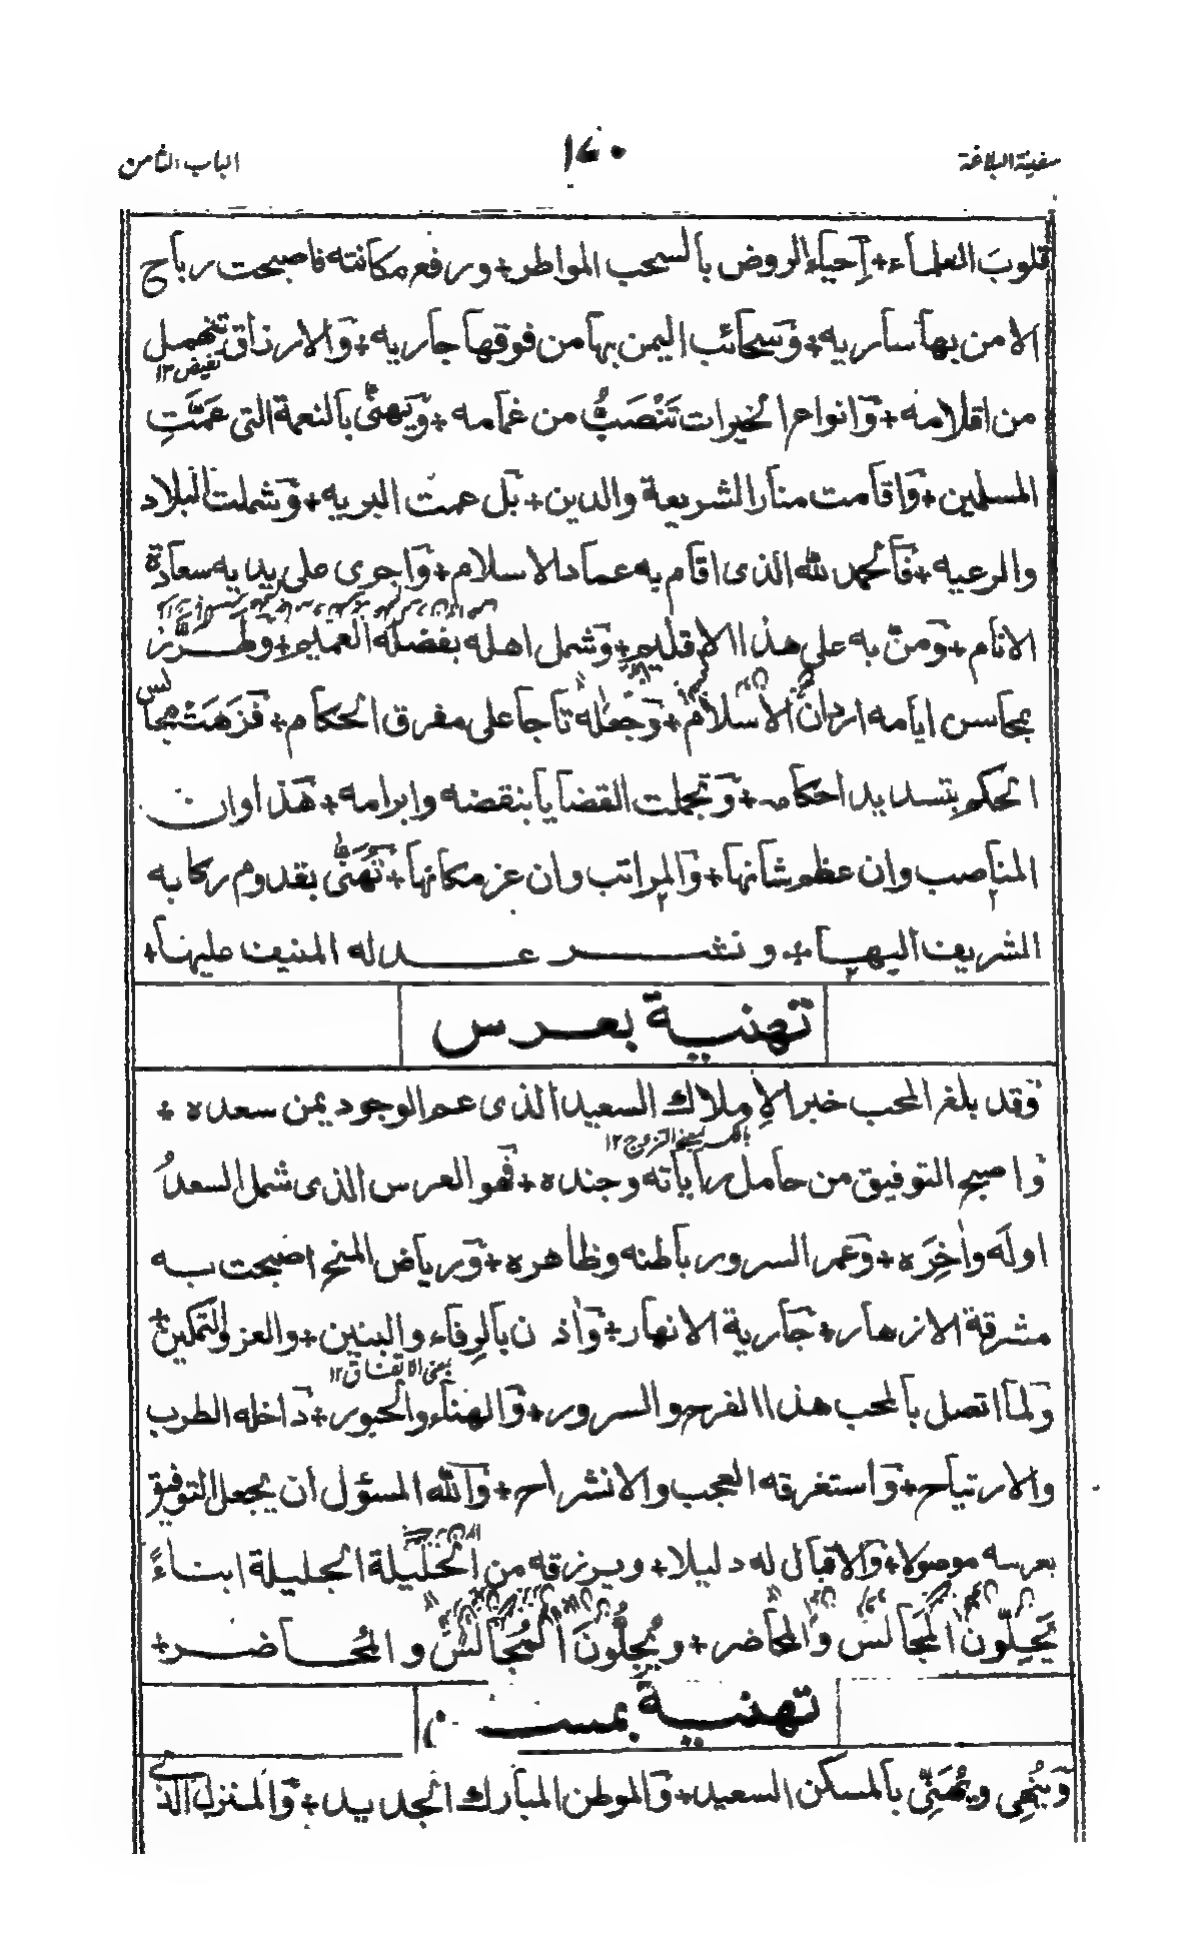 سفينة البلاغة
١٤٠
الباب الثامن
قلوبَ العلماء + إحياء الروض بالسحب المواطر + ورفع مكانته فاصبحت رباح
الامن بها سارية + وسحائب اليمن بها من فوقها جارية + والارزاق تنهمل
تفيض ١٢
من اقلامه + وانواع الخيرات تَنْصَبُّ من غمامه + ويهنئ بالنعمة التى عَمَّتِ
المسلمين + واقامت منار الشريعة والدين + بل عمت البريه + وشملت البلاد
والرعيه + فالحمد لله الذى اقام به عماد الاسلام + واجرى على يديه سعادة
الانام + ومنّ به على هذا الاقليم + وشمل اهله بفضله العميم + وطَرَّز
بمحاسن ايامه اردانَ الاسلام + وجعله تاجا على مفرق الحكام + فزهَتْ مجالس
الحكم بتسديد احكامه + وتجملت القضايا بنقضه وابرامه + هذا وان
المناصب وان عظم شانها + والمراتب وان عز مكانها + تُهَنّٰى بقدوم ركابه
الشريف اليها + ونشر عدله المنيف عليها +
تهنية بعرس
فقد بلغ المحب خبر الإملاك السعيد الذى عم الوجود يمن سعده +
بالكسر بمعنى التزوج ١٢
واصبح التوفيق من حامل راياته وجنده + فهو العرس الذى شمل السعدُ
اولَه واٰخِرَه + وعمر السرور باطنه وظاهره + ورياض المنح اصبحت به
مشرقة الازهار + جارية الانهار + واٰذن بالوِفاء والبنين + والعز والتمكين +
بمعنى الاتفاق ١٢
ولما اتصل بالمحب هذا الفرح والسرور + والهناء والحبور + داخله الطرب
والارتياح + واستغرقه العجب والانشراح + والله المسؤل ان يجعل التوفيق
بعرسه موصولا + والاقبال له دليلا + ويرزقه من الحليلة الجليلة ابناءً
يَحِلّون المجالس والمحاضر + ويُجِلُّونَ المجالسَ والمحاضر +
تهنية بمسكن
ويُنْهِي ويُهَنِّي بالمسكن السعيد + والموطن المبارك الجديد + والمنزل الذى